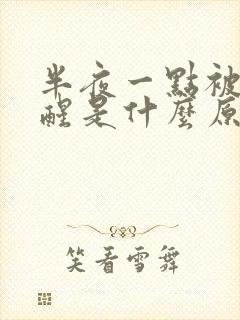 半夜一點被
醒是什麼原
笑看雪舞